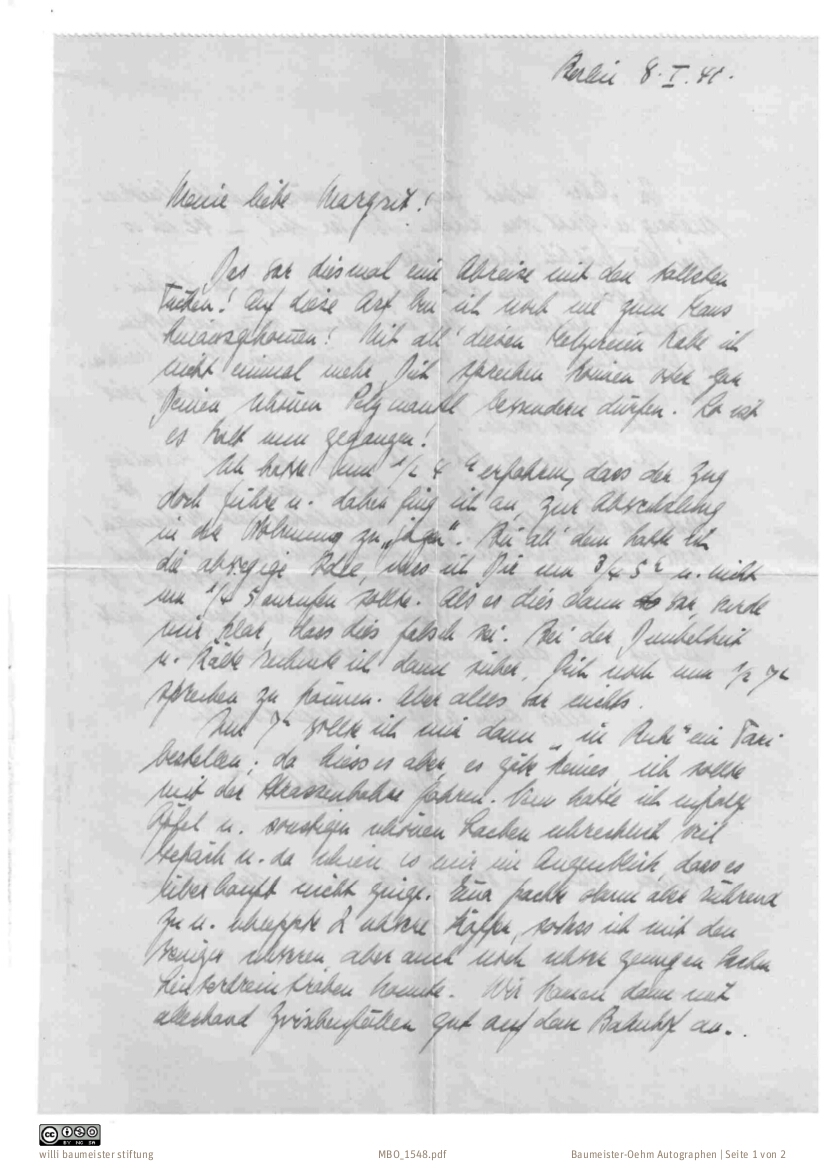 Berlin 8. I. 41.
Meine liebe Margrit!
Das war diesmal eine Abreise mit den seltsten
Tücken! Auf diese Art bin ich noch nie zum Haus
hinausgekommen! Mit all' diesen habe ich
nicht einmal mehr Dich sprechen können oder gar
Deinen schönen Pelzmantel bewundern dürfen. So ist
es halt nun gegangen!
Ich hatte um 1/2 4 h erfahren, dass der Zug
doch führe u. daher fing ich an, zur Abschalung
in der Wohnung zu „ “. Bei all' dem hatte ich
die abwegige Idee, dass ich Dir um 3/4 5 h u. nicht
um 1/4 5 anrufen sollte. Als es dies dann war, wurde
mir klar, dass dies falsch sei. Bei der Dunkelheit
u. Kälte rechnete ich dann sicher, Dich noch um 1/2 7 h
sprechen zu können. Aber alles war nichts.
Um 7 h wollte ich mir dann „in Ruhe“ ein Taxi
bestellen; da hiess es aber, es gäbe keines, ich sollte
mit der Strassenbahn fahren. Nun hatte ich infolge
Äpfel u. sonstigen schönen Sachen schrecklich viel
Gepäck u. da schien es mir im Augenblick, dass es
überhaupt nicht ginge. packte dann aber rührend
zu u. schleppte 2 schwere Koffer, sodass ich mit den
weniger schweren aber auch noch schwer genugen Sachen
hinterdrein traben konnte. Wir kamen dann mit
allerhand Zwischenfällen gut auf dem Bahnhof an.
willi baumeister stiftung
MBO_1548.pdf
Baumeister-Oehm Autographen | Seite 1 von 2